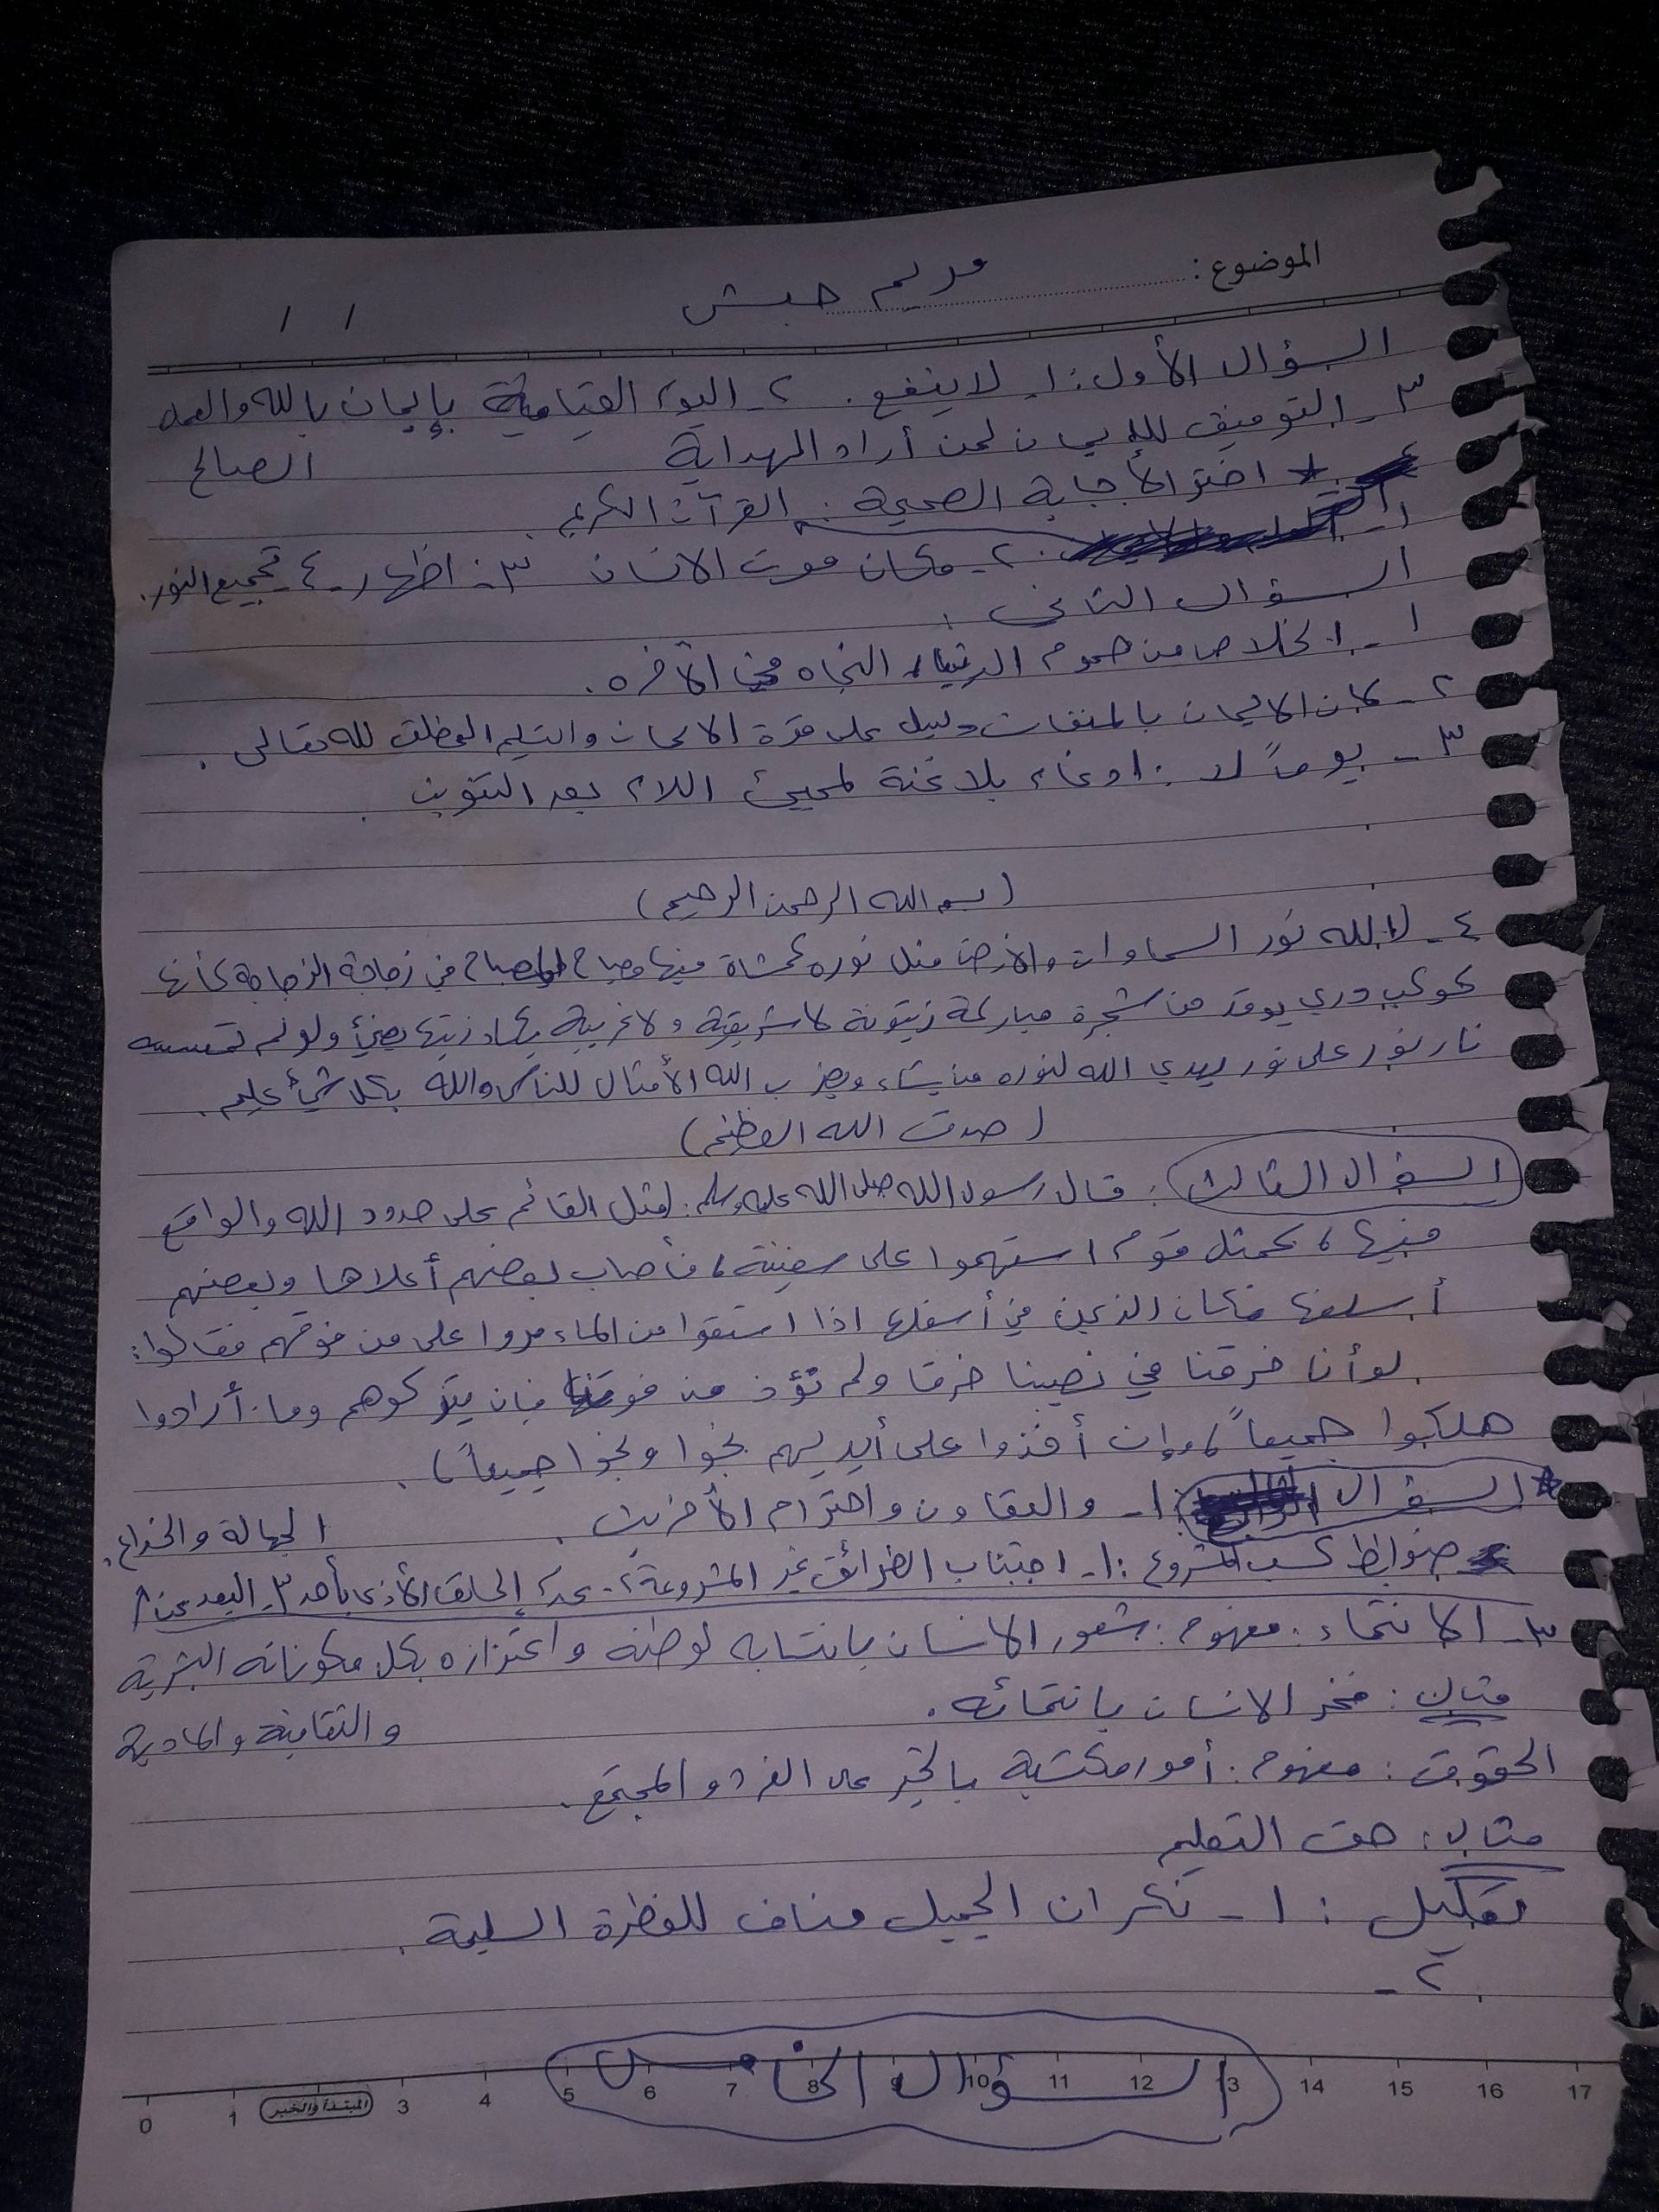 الموضوع: مريم حبش
/ /
السؤال الأول: ١- لا ينفع. ٢- اليوم القيامة بإيمان بالله والعمل
الصالح
٣- التوفيق للإيمان لمن أراد الهداية
* اختر الأجابة الصحيحة:
١- القرآن الكريم. ٢- مكان موت الانسان ٣- اظهار ٤- تجميع النور.
السؤال الثاني:
١- الخلاص من هموم الدنيا، النجاه من الآخره.
٢- كان الايمان بالمنفات دليل على قوة الايمان والتسليم المطلق لله تعالى.
٣- يوماً لا: ادغام بلا غنة لمجيئ اللام بعد التنوين.
(بسم الله الرحمن الرحيم)
٤- الله نور السماوات والأرض مثل نوره كمشاة فيها مصباح المصباح في زجاجة الزجاجة كأنها
كوكب دري يوقد من شجرة مباركة زيتونة لا شريقية ولا غريبة يكاد زيتها يضيئ ولو لم تمسسه
نار نور على نور يهدي الله لنوره من يشاء ويضرب الله الأمثال للناس والله بكل شيئ عليم.
(صدق الله العظيم)
السؤال الثالث: قال رسول الله صلى الله عليه وسلم: (مثل القائم على حدود الله والواقع
فيها، كمثل قوم استهموا على سفينة، فأصاب بعضهم أعلاها وبعضهم
أسفلها فكان الذين في أسفلها اذا استقوا من الماء مروا على من فوقهم فقالوا:
لو أنا خرقنا في نصيبنا خرقا ولم نؤذ من فوقنا فإن يتركوهم وما أرادوا
هلكوا جميعاً، وإن أخذوا على أيديهم نجوا ونجوا جميعاً).
* السؤال الرابع: ١- والتعاون واحترام الأخرين.
الجهالة والخداع.
ضوابط كسب المشروع: ١- اجتناب الطرائق غير المشروعة ٢- عدم إلحاق الأذى بأحد ٣- البعد عن
٣- الانتماء: مفهوم: شعور الانسان بانتسابه لوطنه واعتزازه بكل مكوناته البشرية
والثقافية والمادية
مثال: فخر الانسان بانتمائه.
الحقوق: مفهوم: أمور مكتسبة بالخير على الفرد والمجتمع.
مثال: حق التعليم
تعليل: ١- نكران الجميل مناف للفطرة السليمة.
٢-
السؤال الخامس
0 1 المبتدأ والخبر 3 4 5 6 7 8 9 10 11 12 13 14 15 16 17